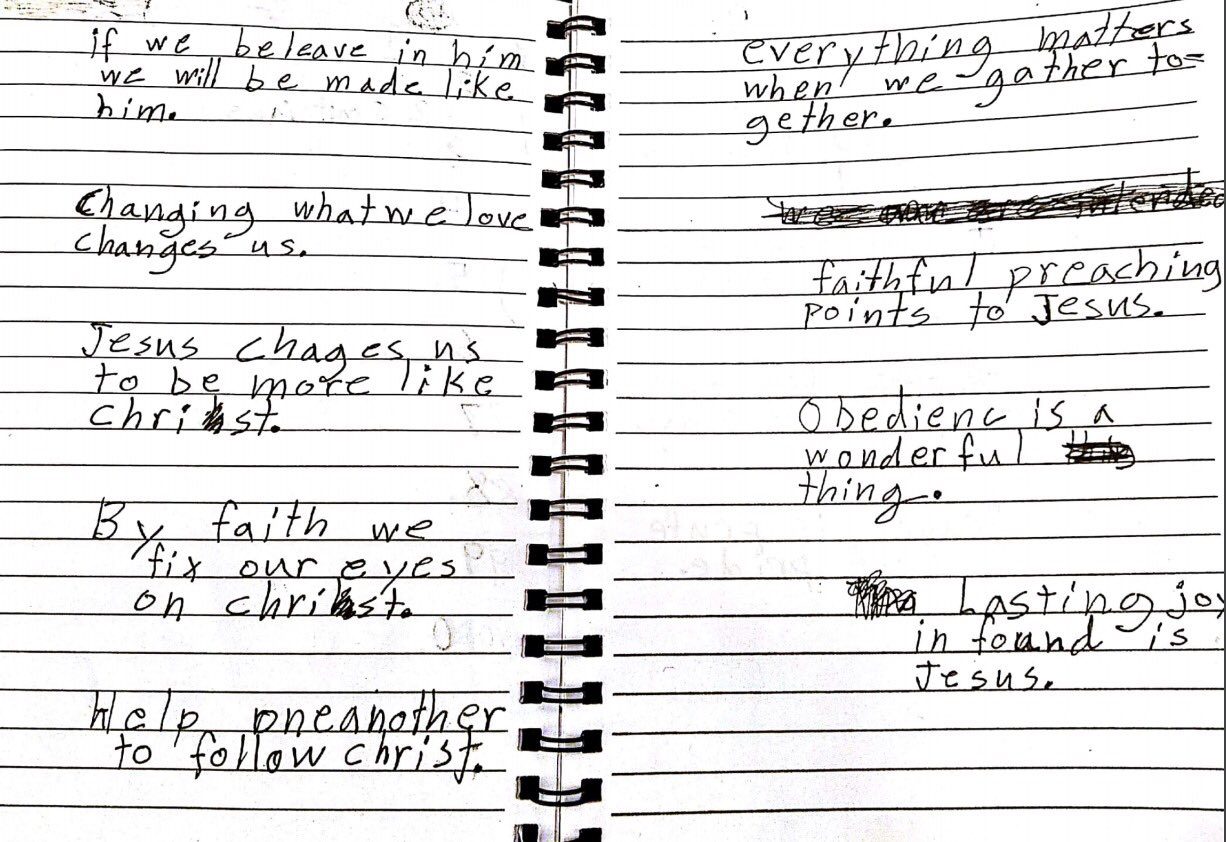 if we beleave in him
we will be made like
him.
Changing what we love
changes us.
Jesus chages us
to be more like
christ.
By faith we
fix our eyes
on christ.
Help oneanother
to follow christ.
everything matters
when we gather to=
gether.
faithful preaching
points to Jesus.
Obedienc is a
wonderful
thing.
Lasting joy
in found is
Jesus.